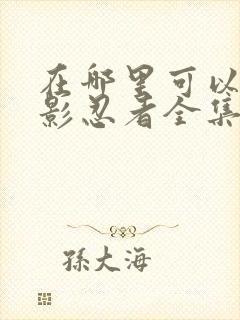 在哪里可以
影忍者全集
孫大海